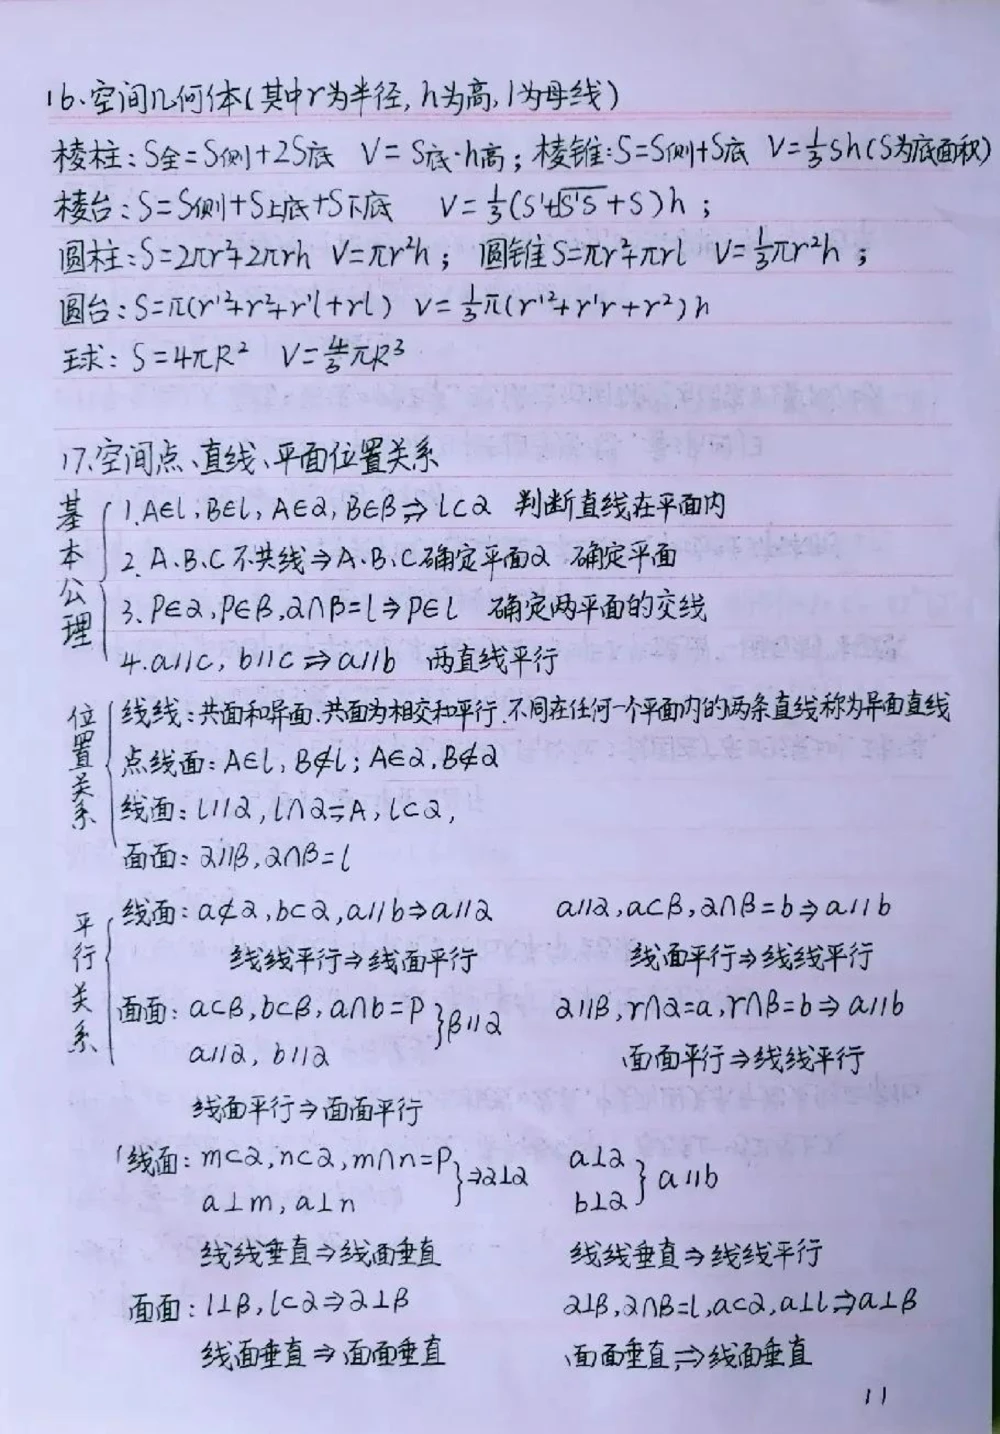 16.空间几何体(其中r为半径,h为高,l为母线)
棱柱:S全=S侧+2S底 V=S底·h高;棱锥:S=S侧+S底 V=⅓Sh(S为底面积)
棱台:S=S侧+S上底+S下底 V=⅓(S'+√S'S+S)h;
圆柱:S=2πr²+2πrh V=πr²h; 圆锥S=πr²+πrl V=⅓πr²h;
圆台:S=π(r'²+r²+r'l+rl) V=⅓π(r'²+r'r+r²)h
球:S=4πR² V=4/3πR³
17.空间点、直线、平面位置关系
基本公理
1.A∈l,B∈l,A∈α,B∈β⇒l⊂α 判断直线在平面内
2.A.B.C不共线⇒A.B.C确定平面α 确定平面
3.P∈α,P∈β,α∩β=l⇒P∈l 确定两平面的交线
4.a∥c,b∥c⇒a∥b 两直线平行
位置关系
线线:共面和异面.共面为相交和平行.不同在任何一个平面内的两条直线称为异面直线
点线面:A∈l,B∉l;A∈α,B∉α
线面:l∥α,l∩α=A,l⊂α,
面面:α∥β,α∩β=l
平行关系
线面:a⊄α,b⊂α,a∥b⇒a∥α a∥α,a⊂β,α∩β=b⇒a∥b
线线平行⇒线面平行 线面平行⇒线线平行
面面:a⊂β,b⊂β,a∩b=P }β∥α α∥β,r∩α=a,r∩β=b⇒a∥b
a∥α,b∥α 面面平行⇒线线平行
线面平行⇒面面平行
线面:m⊂α,n⊂α,m∩n=P }⇒α⊥α a⊥α } a∥b
a⊥m,a⊥n b⊥α
线线垂直⇒线面垂直 线线垂直⇒线线平行
面面:l⊥β,l⊂α⇒α⊥β α⊥β,α∩β=l,a⊂α,a⊥l⇒a⊥β
线面垂直⇒面面垂直 面面垂直⇒线面垂直
11